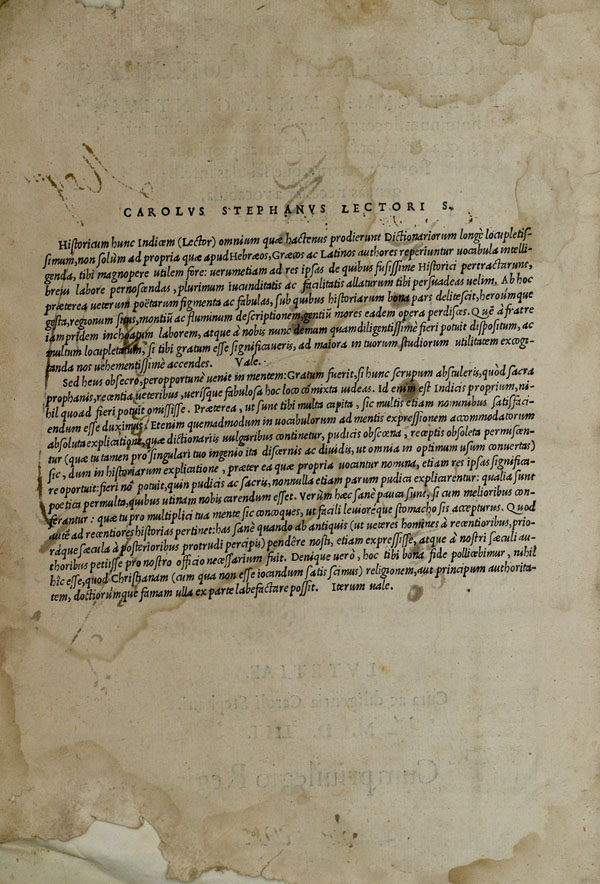 CAROLVS STEPHANVS LECTORI S.
Historicum hunc Indicem (Lector) omnium quæ hactenus prodierunt Dictionariorum longè locupletis-
simum, non solùm ad propria quæ apud Hebræos, Græcos ac Latinos authores reperiuntur uocabula intelli-
genda, tibi magnopere utilem fore: uerumetiam ad res ipsas de quibus fusissime Historici pertractarunt,
breui labore pernoscendas, plurimum iucunditatis ac facilitatis allaturum tibi persuadeas uelim. Ab hoc
præterea ueterum poëtarum figmenta ac fabulas, sub quibus historiarum bona pars delitescit, heroúmque
gesta, regionum situs, montiũ ac fluminum descriptionem, gentiũ mores eadem opera perdisces. Què à fratre
iampridem inchoatum laborem, atque à nobis nunc demum quamdiligentissimè fieri potuit dispositum, ac
multum locupletatum, si tibi gratum esse significaueris, ad maiora in tuorum studiorum utilitatem excogi-
tanda nos uehementissimè accendes. Vale.
Sed heus obsecro, peropportunè uenit in mentem: Gratum fuerit, si hunc scrupum abstuleris, quòd sacra
prophanis, recentia ueteribus, uerisque fabulosa hoc loco cõmixta uideas. Id enim est Indicis proprium, ni-
hil quoad fieri potuit omisisse. Præterea, ut sunt tibi multa capita, sic multis etiam nominibus satisfaci-
endum esse duximus. Etenim quemadmodum in uocabulorum ad mentis expressionem accommodatorum
absoluta explicatione, quæ dictionariis uulgaribus continetur, pudicis obscœna, receptis obsoleta permiscen-
tur (quæ tu tamen pro singulari tuo ingenio ita discernis ac diuidis, ut omnia in optimum usum conuertas)
sic, dum in historiarum explicatione, præter ea quæ propria uocantur nomina, etiam res ipsas significa-
re oportuit: fieri nõ potuit, quin pudicis ac sacris, nonnulla etiam parum pudica explicarentur: qualia sunt
poetica permulta, quibus utinam nobis carendum esset. Verùm hæc sanè pauca sunt, si cum melioribus con-
ferantur: quæ tu pro multiplici tua mente sic concoques, ut facili leuioréque stomacho sis accepturus. Quod
autẽ ad recentiores historias pertinet: has sanè quando ab antiquis (ut ueteres homines à recentioribus, prio-
ráque sæcula à posterioribus protrudi percipis) pendère nosti, etiam expressisse, atque à nostri sæculi au-
thoribus petiisse pro nostro officio necessarium fuit. Denique uerò, hoc tibi bona fide pollicebimur, nihil
hîc esse, quod Christianam (cum qua non esse iocandum satis scimus) religionem, aut principum authorita-
tem, doctiorúmque famam ulla ex parte labefactare possit. Iterum uale.